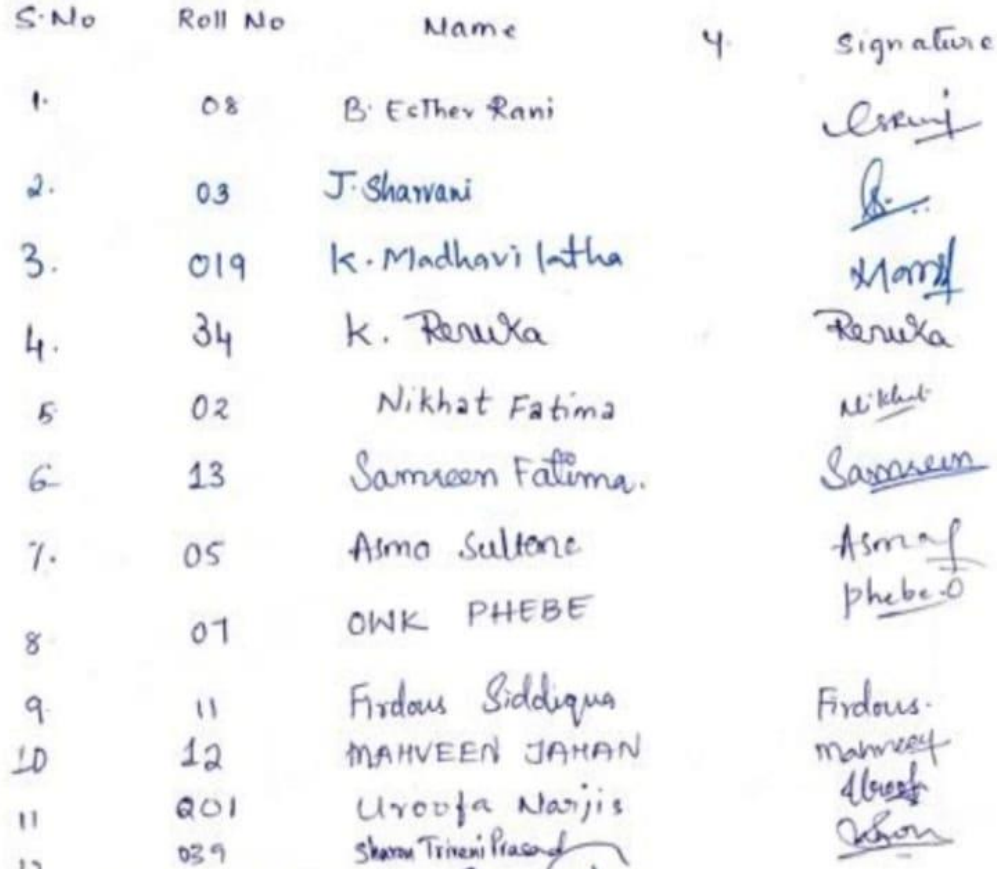 S.No Roll No Name 4. Signature
1. 08 B. Esther Rani
2. 03 J. Sharvani
3. 019 K. Madhavi latha
4. 34 K. Renuka Renuka
5 02 Nikhat Fatima Nikhat
6 13 Samreen Fatima. Samreen
7. 05 Asma Sultana Asma
8 07 OWK PHEBE Phebe.O
9 11 Firdous Siddiqua Firdous.
10 12 MAHVEEN JAHAN
11 201 Uroofa Narjis
12 039 Sharon Triveni Prasad